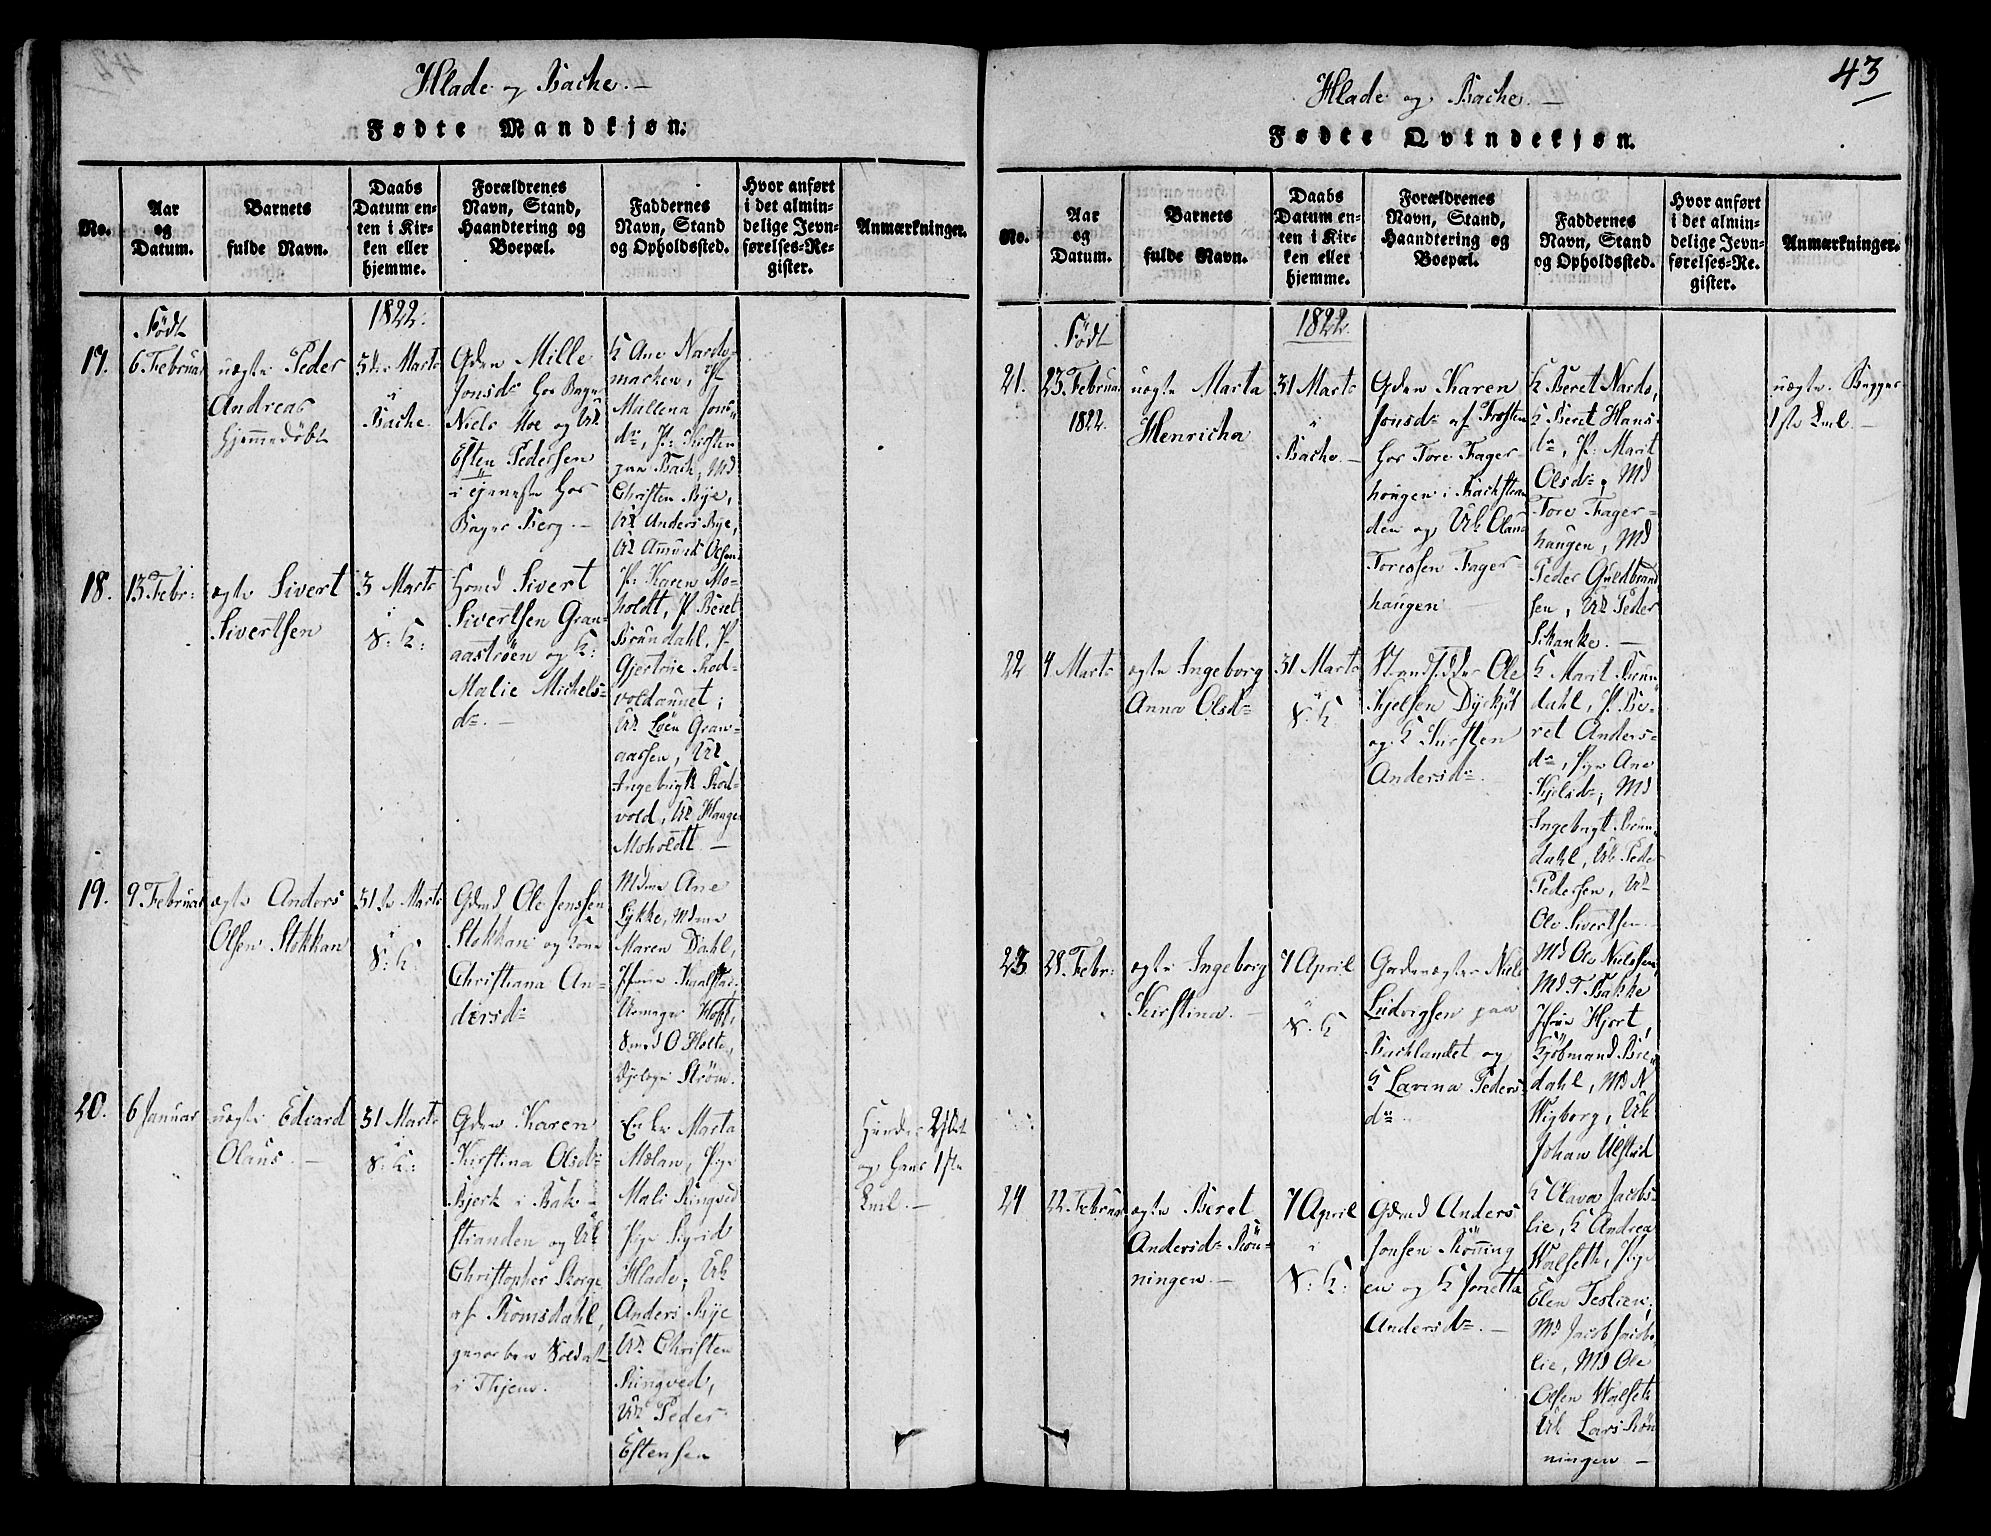 Hlade og Bache.
Fødte Mandkjøn.
No.
Aar
og
Datum.
Barnets
fulde Navn.
Daabs
Datum en-
ten i Kir-
ken eller
hjemme.
Forældrenes
Navn, Stand,
Haandtering og
Boepæl.
Faddernes
Navn, Stand
og Opholdssted.
Hvor anført
i det almin-
delige Jevn-
førelses-Re-
gister.
Anmærkninger.
Født
1822.
17.
6 Februar
uægte Peder
Andreas
hjemmedøbt
5te Marts
i
Bache
Gden Mille
Jonsdr hos Bagr
Niels Moe og Uk
Esten Pedersen
i tjeneste hos
Bagr Berg. —
K Ane Nardo-
marken, P
Mallena Jons-
dr, P: Kirsten
paa Bach, Md
Christen Bye,
Uk Anders Bye,
Uk Amund Olsen
18.
13 Febr:
ægte Sivert
Sivertsen
3 Marts
i
V: K:
Sivert
Sivertsen Gran-
aastrøen og K:
Malie Michels-
dr. —
P: Karen Mo-
holdt, P Beret
Brundahl, P
Gjertrue Rod-
voldaunet;
Uk Loen Gran-
aassen, Uk
Ingebrigt Rod-
vold, Uk Hange
Moholdt —
19.
9 Februar
ægte Anders
Olsen Stokkan
31te Marts
i
V: K:
Gdmd Ole Jenssen
Stokkan og Kone
Christiana An-
dersdr
Mdme Ane
Lykke, Mdme
Maren Dahl,
Hoft,
O Holte,
Strøm.
20.
6 Januar
uægte Edvard
Olaus. —
31 Marts
i
V: K:
Gden Karen
Kirstina Olsdr
Bjerk i Bak-
stranden og Uk
Christopher Skorge
af Romsdahl,
gevorben Soldat
i Thjem.
Enke Marta
Mælan, Pige
Mali Ringved
Pige Sigrid
Hlade, Uk
Anders Bye
Uk Christen
Ringved,
Uk Peder
Estensen
Hendes 2det
og hans 1ste
Leml. —
43
Hlade og Bache. —
Fødte Qvindekjøn.
No.
Aar
og
Datum.
Barnets
fulde Navn.
Daabs
Datum en-
ten i Kir-
ken eller
hjemme.
Forældrenes
Navn, Stand,
Haandtering og
Boepæl.
Faddernes
Navn, Stand
og Opholdssted.
Hvor anført
i det almin-
delige Jevn-
førelses-Re-
gister.
Anmærkninger.
Født
1822.
21.
23 Februar
1822.
uægte Marta
Henricha
31 Marts
i
Bache. —
Gden Karen
Jonsdr af Frosten
hos Tore Fager-
hougen i Backstran
den og Uk Olaus
Toresen Fager-
haugen —
K Beret Nardo,
K Beret Hans-
dr, P: Marit
Olsdr, Md
Tore Fager-
haugen, Md
Peder Guldbrand
sen, Uk Peder
Schanke. —
uægte. Begges
1ste Leml. —
22
4 Marts
ægte Ingeborg
Anna Olsdr
31 Marts
i
V. K
Strandsidder Ole
Kjelsen Dyekjøl
og K Kirsten
Andersdr.
K Marit Brun
dahl, P. Be-
ret Anders-
dr, Pige Ane
Kjelsdr, Md
Ingebrigt Brun
dahl, Uk Peder
Pedersen, Uk
Ole Sivertsen
23
28 Febr:
ægte Ingeborg
Kirstina. —
7 April
i
V. K
Niels
Ludvigsen paa
Backlandet og
K Lavina Peders-
dr
Md Ole Nielssen,
Md T Bakke
Hjort,
Kjøbmand Bre
dahl, Md N
Wigborg, Uk
Johan Ulstad
24
22 Februar
ægte Beret
Andersdr Røn-
ningen. —
7 April
i
V: K:
Gdmd Anders
Jonsen Rønning
en og K Jonetta
Andersdr. —
K Olava Jacobs-
lie, K Andrea
Walseth, Pige
Elen Teslien,
Md Jacob Jacobs
lie, Md Ole
Olsen Walseth
Uk Lars Røn
ningen —